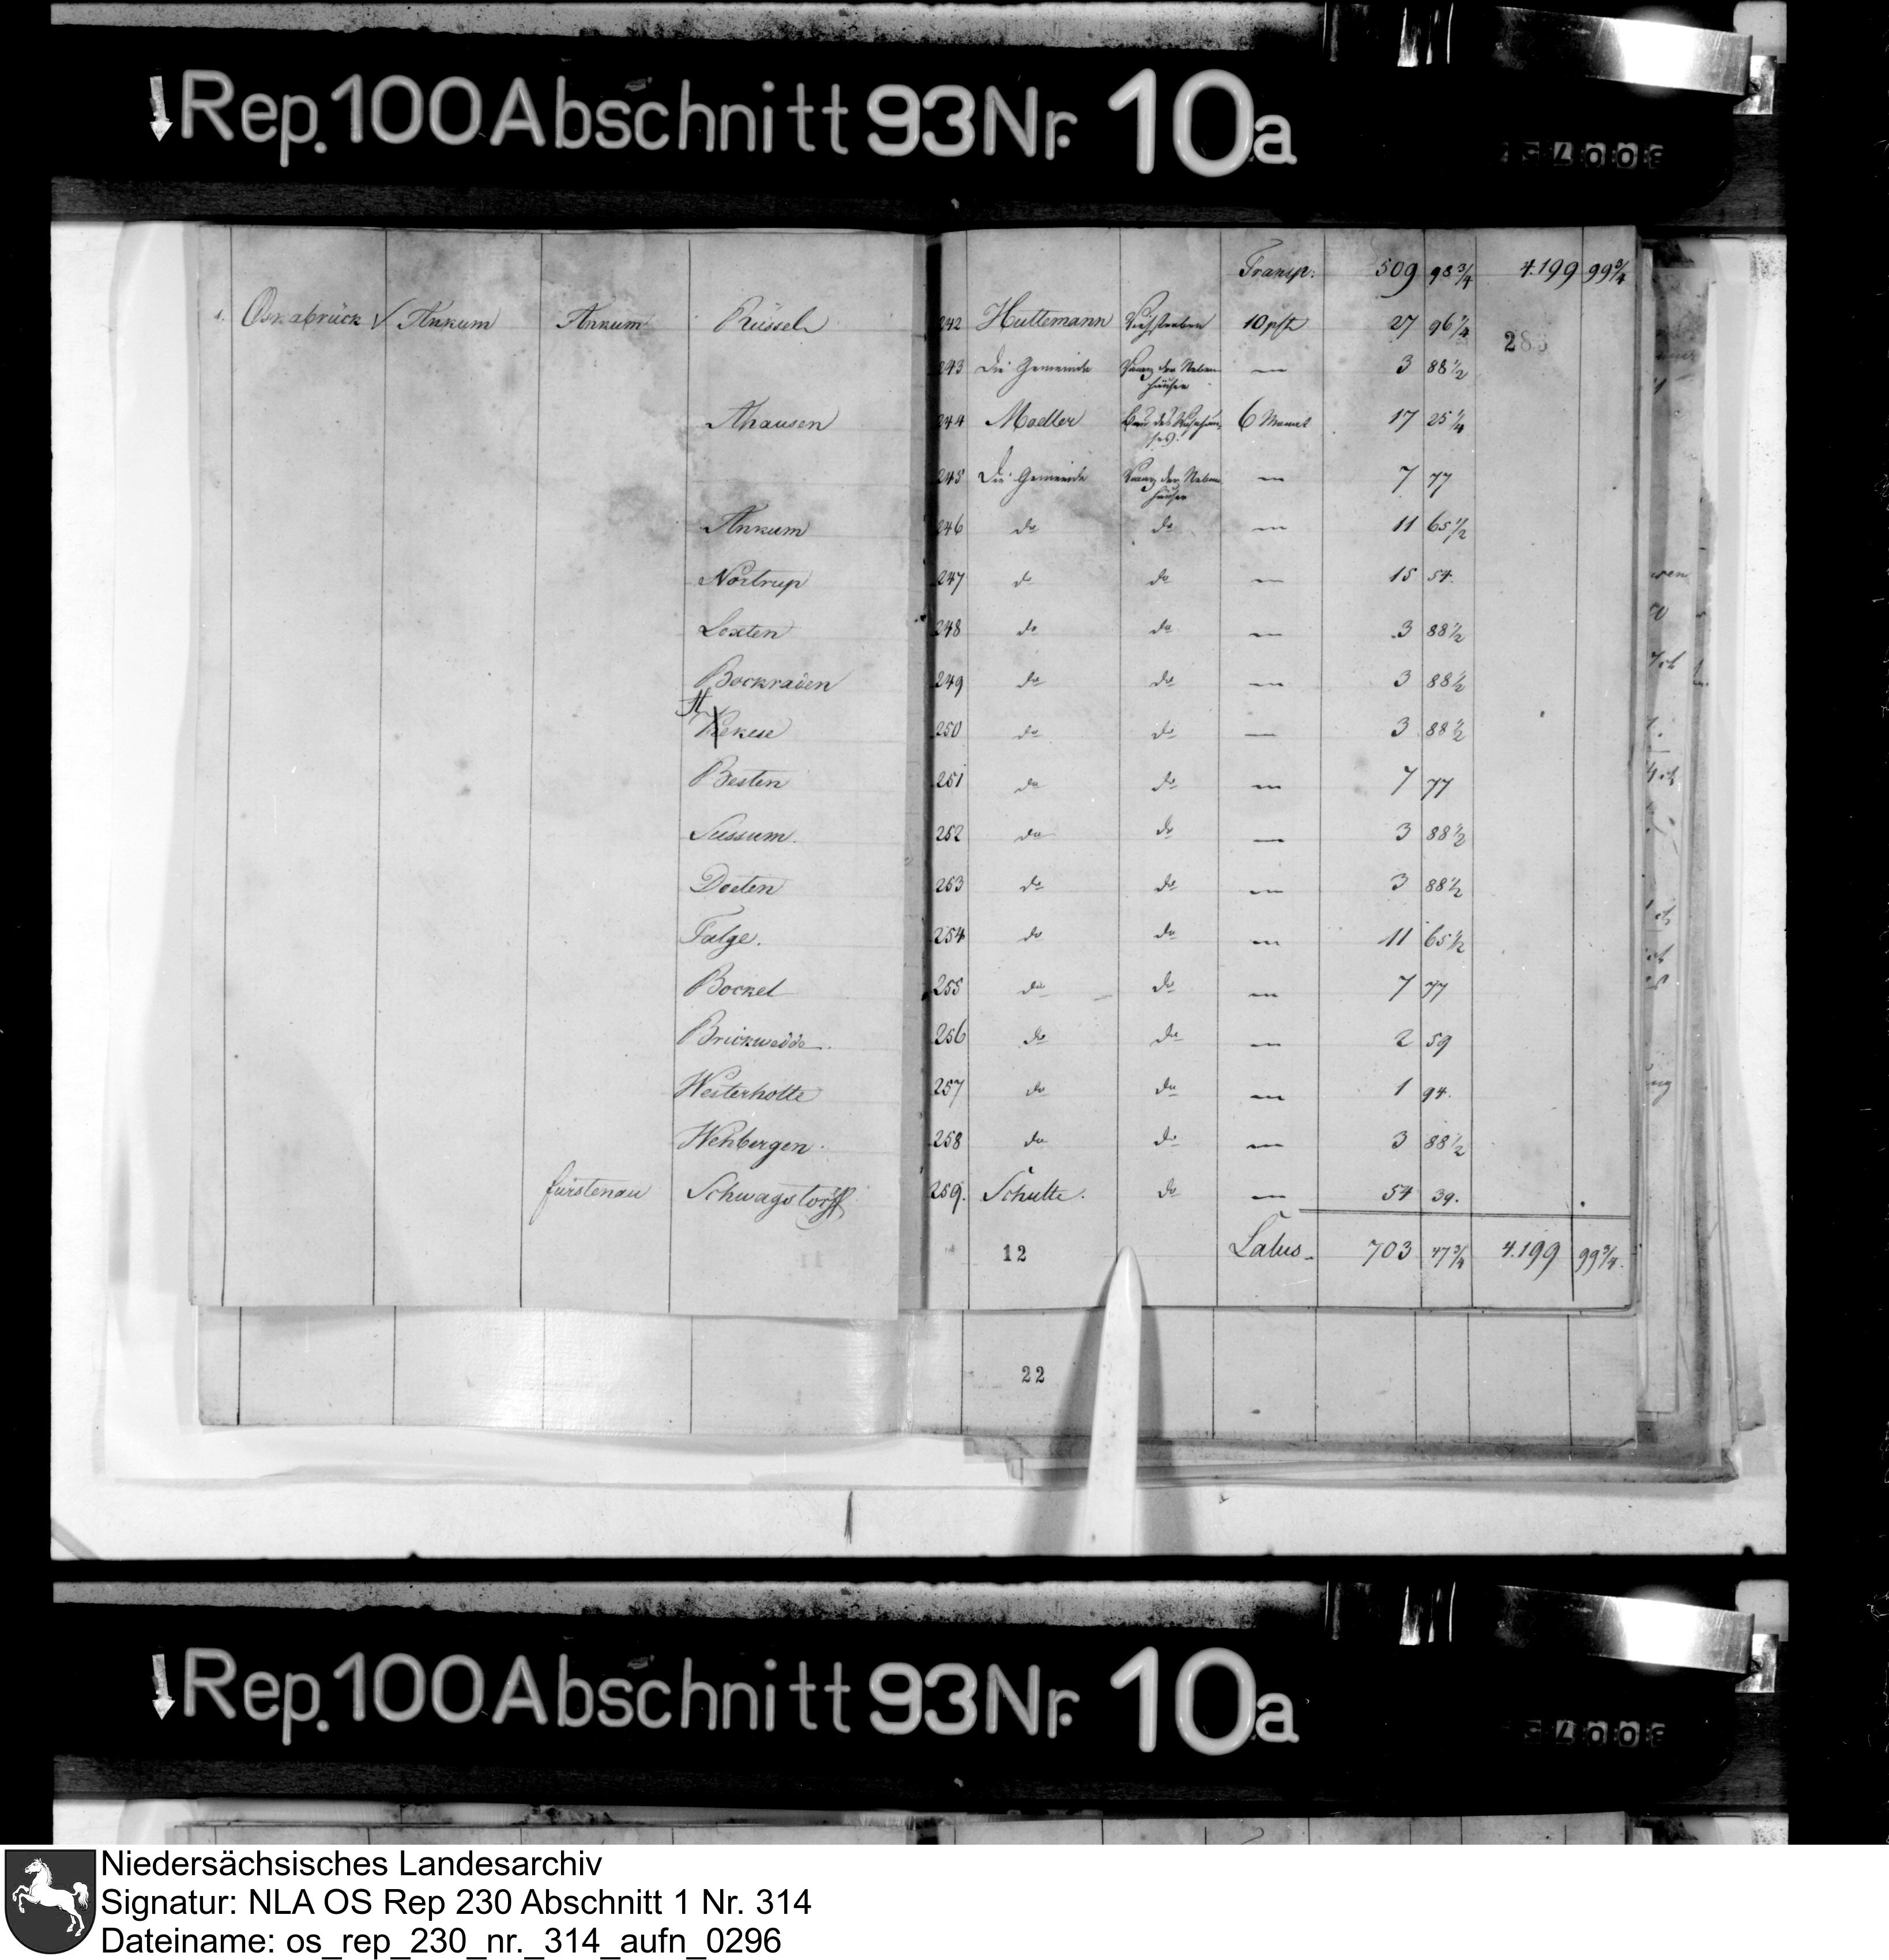 Rep. 100 Abschnitt 93 Nr. 10a
Transp. 509 98 3/4 4.199 99 3/4
1. Osnabrück √ Ankum Ankum Rüssel 242 Huttemann 10 pft 27 96 1/4
283
243 Die Gemeinde — 3 88 1/2
häuser
Ahausen 244 Madler 6 Monat 17 25 1/4
245 Die Gemeinde der Neben — 7 77
häuser
Ankum 246 do do — 11 65 1/2
Nortrup 247 do do — 15 54.
Loxten 248 do do — 3 88 1/2
Bockraden 249 do do — 3 88 1/2
250 do do — 3 88 1/2
Besten 251 do do — 7 77
Sussum. 252 do do — 3 88 1/2
Doeten 253 do do — 3 88 1/2
Talge. 254 do do — 11 65 1/2
Bockel 255 do do — 7 77
Brickwedde. 256 do do — 2 59
Westerholte 257 do do — 1 94.
Wehbergen. 258 do do — 3 88 1/2
fürstenau Schwagstorff 259. Schulte. do — 54 39.
12 Latus 703 47 3/4 4.199 99 3/4.
22
Rep. 100 Abschnitt 93 Nr. 10a
Niedersächsisches Landesarchiv
Signatur: NLA OS Rep 230 Abschnitt 1 Nr. 314
Dateiname: os_rep_230_nr._314_aufn_0296